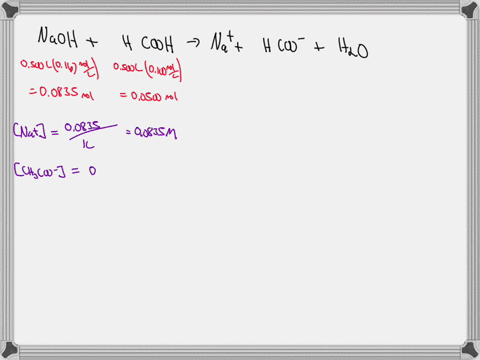 NaOH + HCOOH → Na⁺ + HCOO⁻ + H₂O
0.500L (0.16) mol/L 0.500L (0.100 mol/L)
= 0.0835 mol = 0.0500 mol
[Na+] = 0.0835 / 1L = 0.0835 M
[CH₃COO⁻] = 0